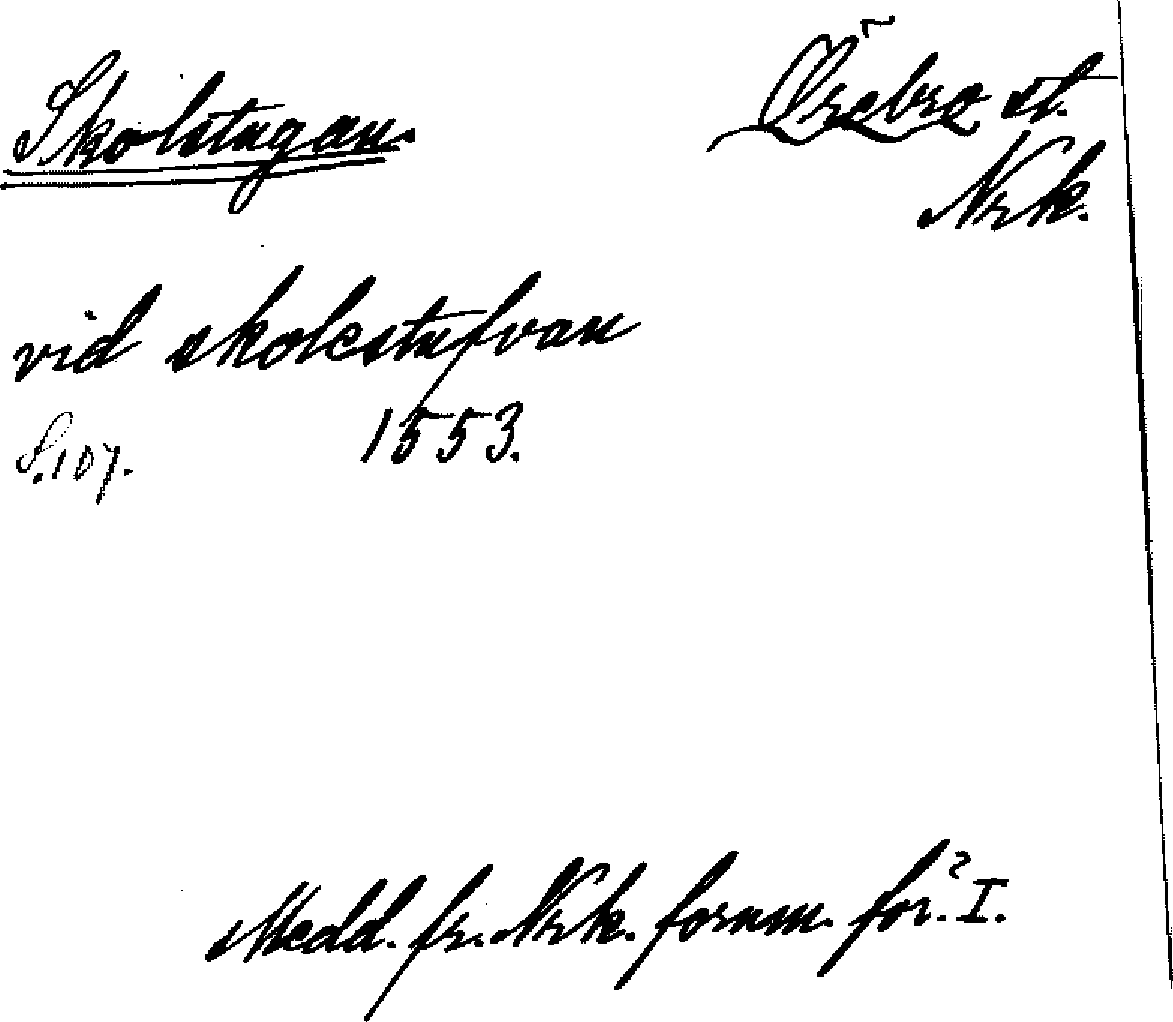 Skolstugan.
Örebro st.
Nrk.
vid skolestufvan
1553.
S. 107.
Medd. fr. Nrk. fornm. för. I.